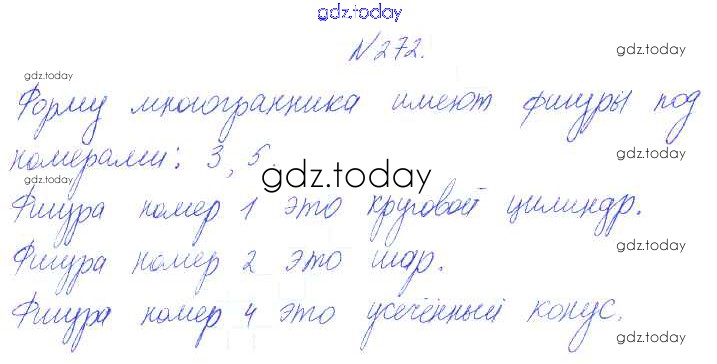 gdz.today
№272.
gdz.today
gdz.today
Форму многогранника имеют фигуры под
номерами: 3, 5.
gdz.today
gdz.today
gdz.today
Фигура номер 1 это круговой цилиндр.
gdz.today
Фигура номер 2 это шар.
gdz.today
Фигура номер 4 это усечённый конус.
gdz.today
gdz.today